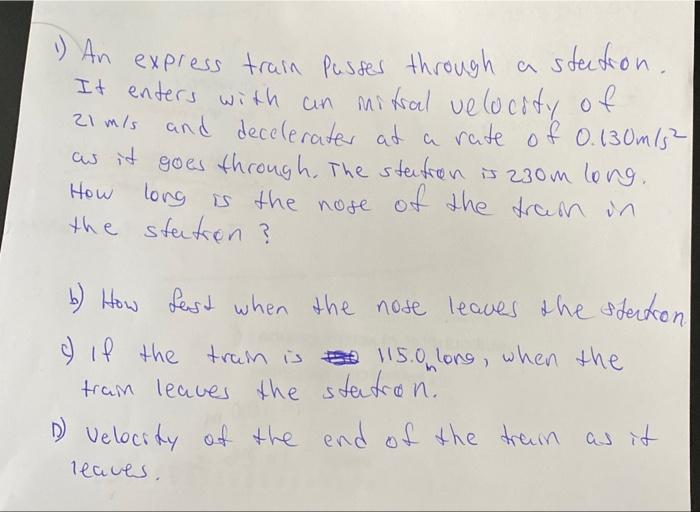 1) An express train passes through a station.
It enters with an initial velocity of
21 m/s and decelerates at a rate of 0.130m/s²
as it goes through. The station is 230m long.
How long is the nose of the train in
the station?
b) How fast when the nose leaves the station
c) if the train is 115.0 m long, when the
train leaves the station.
D) velocity of the end of the train as it
leaves.